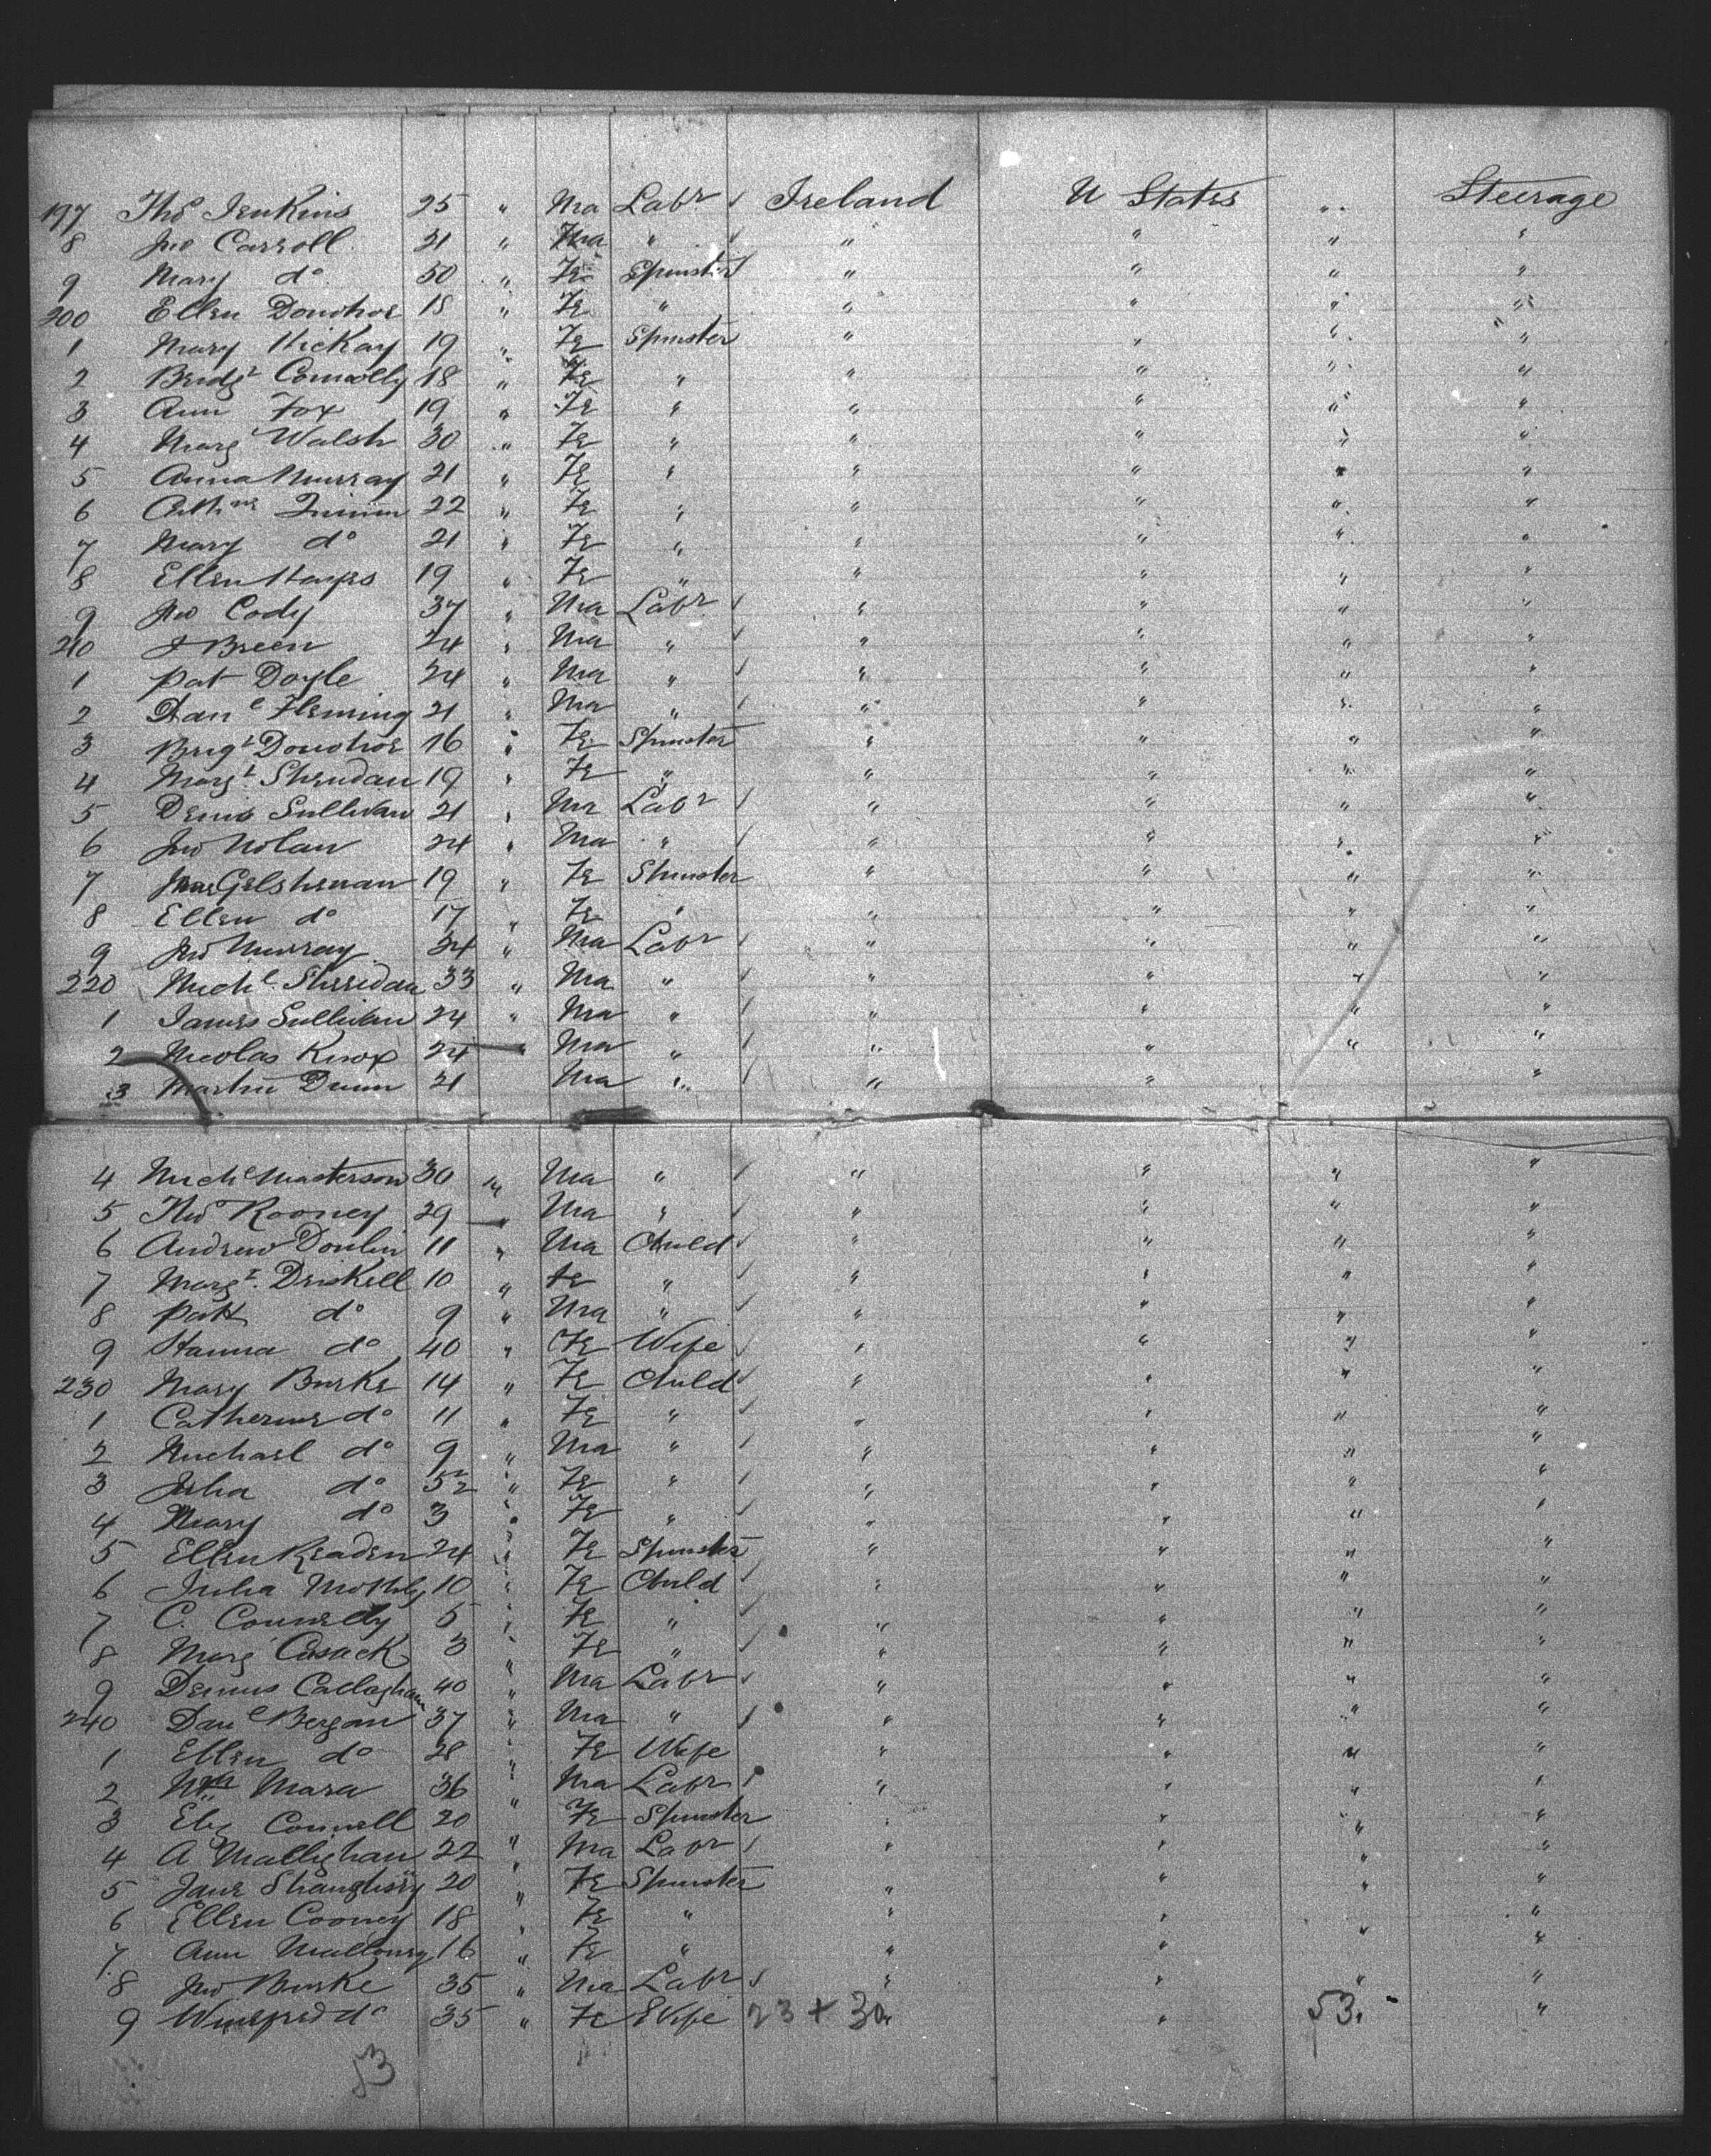 197 Thos Jenkins 25 " Ma Labr ✓ Ireland U States " Steerage
8 Jno Carroll 21 " Ma " ✓ " " " "
9 Mary do 50 " Fe Spinster " " " "
200 Ellen Donohoe 18 " Fe " " " " "
1 Mary Hickay 19 " Fe Spinster " " " "
2 Bridgt Connolly 18 " Fe " " " " "
3 Ann Fox 19 " Fe " " " " "
4 Marg Walsh 30 " Fe " " " " "
5 Anna Murray 21 " Fe " " " " "
6 Cathne Quinn 22 " Fe " " " " "
7 Mary do 21 " Fe " " " " "
8 Ellen Hayes 19 " Fe " " " " "
9 Jno Cody 37 " Ma Labr ✓ " " " "
210 J Breen 24 " Ma " ✓ " " " "
1 Pat Doyle 24 " Ma " ✓ " " " "
2 Danl Fleming 21 " Ma " ✓ " " " "
3 Brigt Donohoe 16 " Fe Spinster " " " "
4 Margt Sheridan 19 " Fe " " " " "
5 Denis Sullivan 21 " Ma Labr ✓ " " " "
6 Jno Nolan 24 " Ma " ✓ " " " "
7 Gelshenan 19 " Fe Spinster " " " "
8 Ellen do 17 " Fe " " " " "
9 Jno Murray 24 " Ma Labr ✓ " " " "
220 Michl Sheridan 33 " Ma " ✓ " " " "
1 James Sullivan 24 " Ma " ✓ " " " "
2 Nicolas Knox 24 " Ma " ✓ " " " "
3 Martin Dunn 21 Ma " ✓ " " "
4 Michl Masterson 30 " Ma " ✓ " " " "
5 Thos Rooney 29 " Ma " ✓ " " " "
6 Andrew Donlin 11 " Ma Child ✓ " " " "
7 Margt Driskell 10 " Fe " ✓ " " " "
8 Patk do 9 " Ma " ✓ " " " "
9 Hanna do 40 " Fe Wife ✓ " " " "
230 Mary Burke 14 " Fe Child ✓ " " " "
1 Catherine do 11 " Fe " ✓ " " " "
2 Michael do 9 " Ma " ✓ " " " "
3 Julia do " Fe " ✓ " " " "
4 Mary do 3 " Fe " ✓ " " " "
5 Ellen Readen 24 " Fe Spinster " " " "
6 Julia 10 " Fe Child ✓ " " " "
7 C. Connedy 5 " Fe " ✓ " " " "
8 Marg Cusack 3 " Fe " ✓ " " " "
9 Dennis Callaghan 40 " Ma Labr ✓ " " " "
240 Danl Bergan 37 " Ma " ✓ " " " "
1 Ellen do 28 " Fe Wife " " " "
2 Mara 36 " Ma Labr ✓ " " " "
3 Eliz Connell 20 Fe Spinster " " " "
4 A Mallighan 22 " Ma Labr ✓ " " "
5 Jane Shaughsey 20 " Fe Spinster " " " "
6 Ellen Cooney 18 " Fe " " " " "
7 Ann Mallowny 16 " Fe " " " "
8 Jno Burke 35 " Ma Labr ✓ " " " "
9 Winefred do 35 " Fe Wife 23 + 30 " 53 "
53